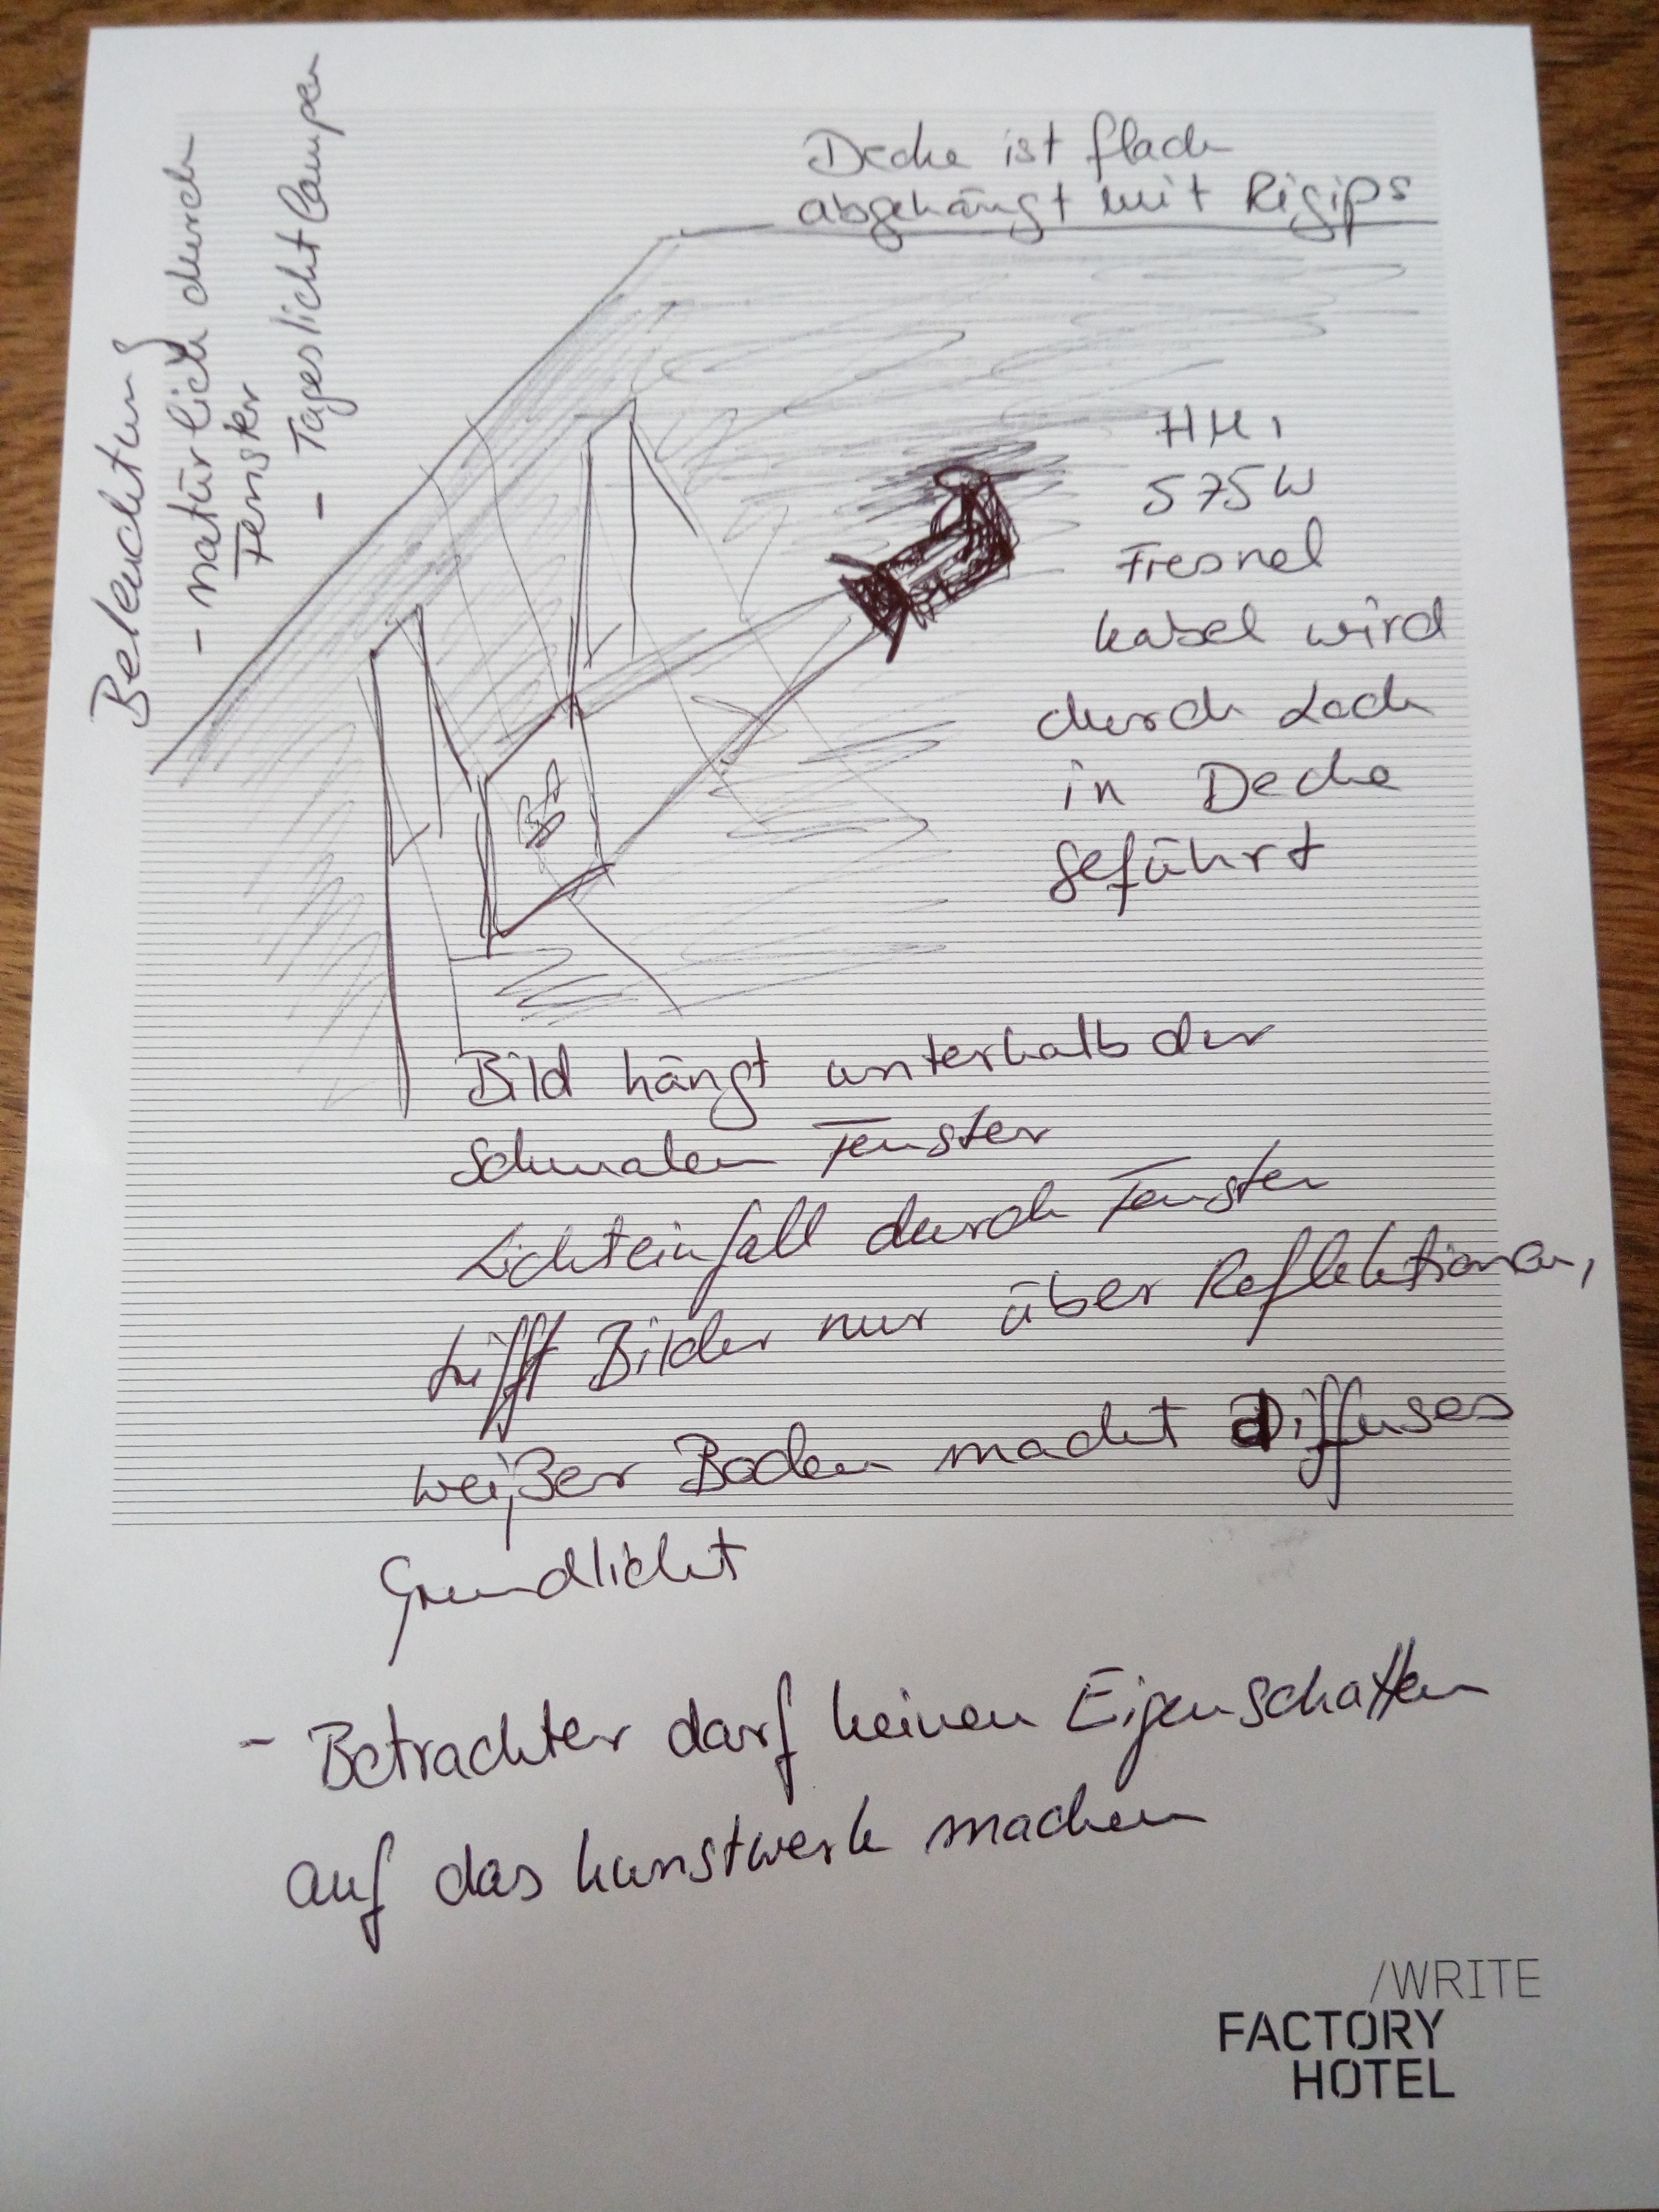 Beleuchtung
- natürlich durch
Fenster
- Tageslichtlampen
Decke ist flach
abgehängt mit Rigips
HMI
575W
Fresnel
Kabel wird
durch Loch
in Decke
geführt
Bild hängt unterhalb der
schmalen Fenster
Lichteinfall durch Fenster
trifft Bilder nur über Reflektionen,
weißer Boden macht diffuses
Grundlicht
- Betrachter darf keinen Eigenschatten
auf das Kunstwerk machen
/WRITE
FACTORY
HOTEL